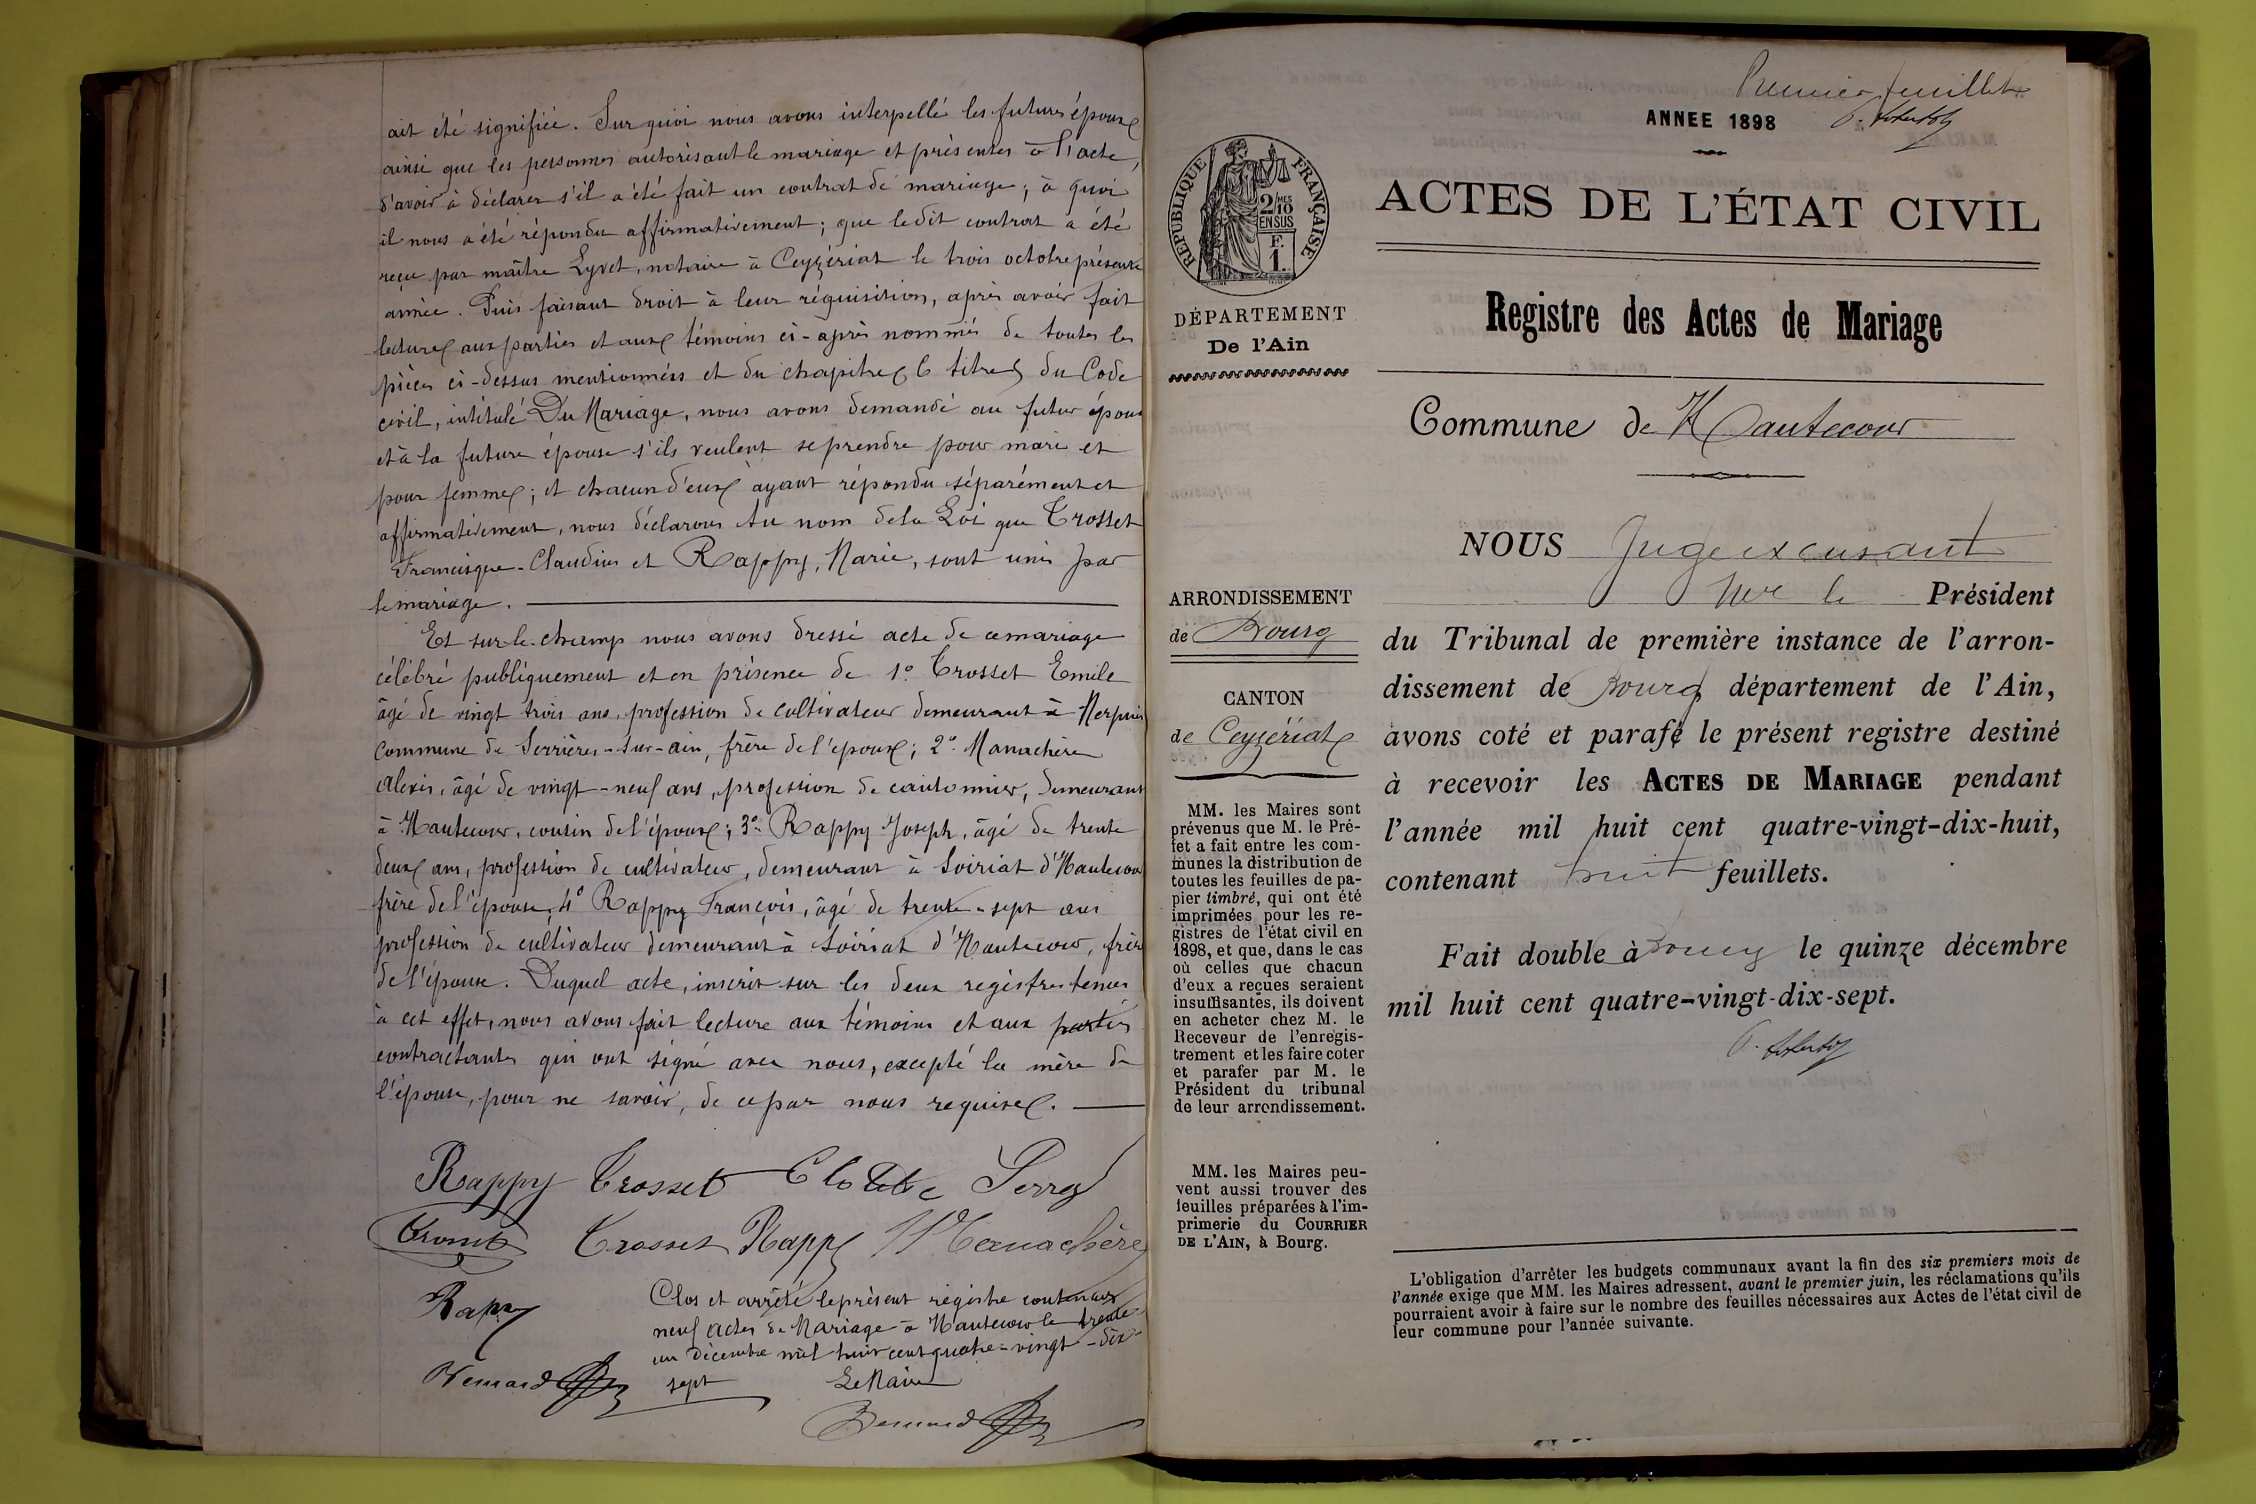 ait été signifiée. Sur quoi nous avons interpellé les futurs époux
ainsi que les personnes autorisant le mariage et présentes à l'acte,
d'avoir à déclarer s'il a été fait un contrat de mariage; à quoi
il nous a été répondu affirmativement; que ledit contrat a été
reçu par maître Lyvet, notaire à Ceyzériat le trois octobre présente
année. Puis faisant droit à leur réquisition, après avoir fait
lecture aux parties et aux témoins ci-après nommés de toutes les
pièces ci-dessus mentionnées et du chapitre 6 titre 5 du Code
civil, intitulé Du Mariage, nous avons demandé au futur époux
et à la future épouse s'ils veulent se prendre pour mari et
pour femme; et chacun d'eux ayant répondu séparément et
affirmativement, nous déclarons Au nom de la Loi que Trosset
Francisque-Claudius et Rappy, Marie, sont unis par
le mariage.
Et sur-le-champ nous avons dressé acte de ce mariage
célébré publiquement et en présence de 1º Trosset Emile
âgé de vingt trois ans, profession de cultivateur demeurant à Merpuis
commune de Serrières-sur-ain, frère de l'époux; 2º Manachère
Alexis, âgé de vingt-neuf ans, profession de cantonnier, demeurant
à Hautecour, cousin de l'époux; 3º Rappy Joseph, âgé de trente
deux ans, profession de cultivateur, demeurant à Soiriat d'Hautecour
frère de l'épouse, 4º Rappy François, âgé de trente-sept ans
profession de cultivateur demeurant à Soiriat d'Hautecour, frère
de l'épouse. Duquel acte, inscrit sur les deux registres tenus
à cet effet, nous avons fait lecture aux témoins et aux parties
contractantes qui ont signé avec nous, excepté la mère de
l'épouse, pour ne savoir, de ce par nous requise.
Rappy Trosset Clotilde Perret
Trosset Trosset Rappy Manachère
Rappy
Clos et arrêté le présent registre contenant
neuf actes de Mariage à Hautecour le trente
un décembre mil huit cent quatre-vingt-dix
sept Le Maire
Bernard
Bernard
Premier feuillet
ANNEE 1898
ACTES DE L'ÉTAT CIVIL
Registre des Actes de Mariage
Commune de Hautecour
RÉPUBLIQUE FRANÇAISE
2/10 MES
EN SUS
F.
1.
DÉPARTEMENT
De l'Ain
ARRONDISSEMENT
de Bourg
CANTON
de Ceyzériat
MM. les Maires sont
prévenus que M. le Pré-
fet a fait entre les com-
munes la distribution de
toutes les feuilles de pa-
pier timbré, qui ont été
imprimées pour les re-
gistres de l'état civil en
1898, et que, dans le cas
où celles que chacun
d'eux a reçues seraient
insuffisantes, ils doivent
en acheter chez M. le
Receveur de l'enregis-
trement et les faire coter
et parafer par M. le
Président du tribunal
de leur arrondissement.
MM. les Maires peu-
vent aussi trouver des
feuilles préparées à l'im-
primerie du COURRIER
DE L'AIN, à Bourg.
NOUS Juge excusant
Mr le Président
du Tribunal de première instance de l'arron-
dissement de Bourg département de l'Ain,
avons coté et parafé le présent registre destiné
à recevoir les ACTES DE MARIAGE pendant
l'année mil huit cent quatre-vingt-dix-huit,
contenant huit feuillets.
Fait double à Bourg le quinze décembre
mil huit cent quatre-vingt-dix-sept.
L'obligation d'arrêter les budgets communaux avant la fin des six premiers mois de
l'année exige que MM. les Maires adressent, avant le premier juin, les réclamations qu'ils
pourraient avoir à faire sur le nombre des feuilles nécessaires aux Actes de l'état civil de
leur commune pour l'année suivante.